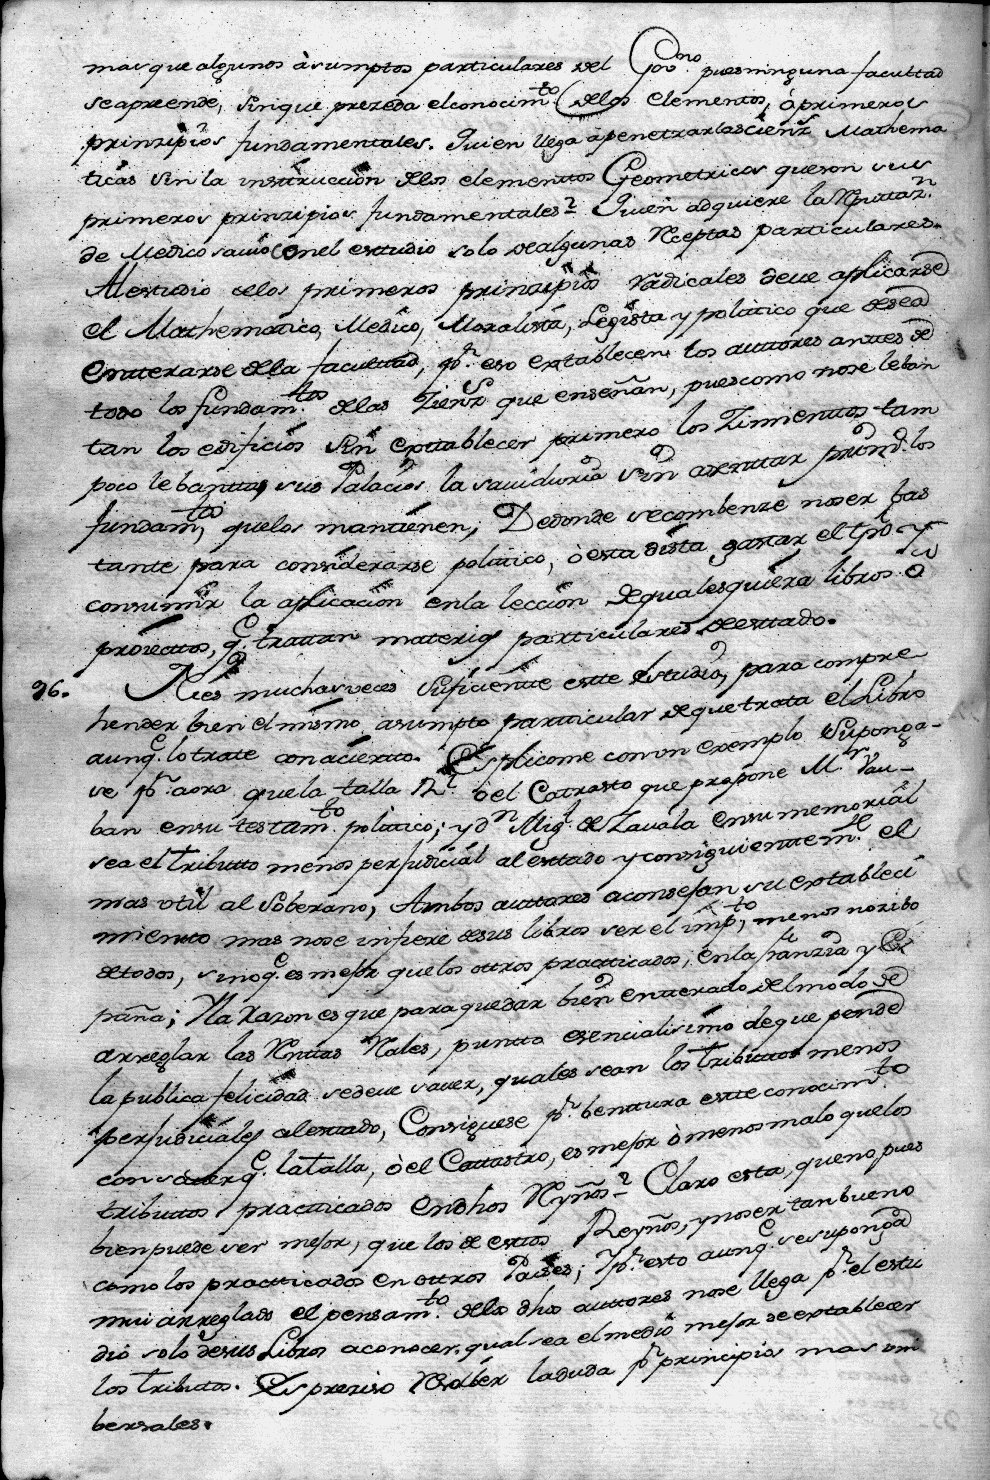 mas que algunos àsumptos particulares del Gov.no pues ninguna facultad
se apreende, sin que prezeda el conocim.to de los elementos, ò primeros
prinzipios fundamentales. Quien llega à penetrar las cienz.s Mathema
ticas sin la instruccion de los elementos Geometricos que son sus
primeros prinzipios fundamentales? Quien adquiere la Reputaz.n
de Medico savio con el estudio solo de algunas Rceptas particulares.
Al estudio de los primeros prinzipios radicales deve aplicarse
el Mathematico, Medico, Moralista, Legista y politico que desea
entterarse de la facultad, p.r eso establecen los auttores anttes de
todo los fundam.tos de las Zienz.s que enseñan, pues como no se leban
tan los edificios sin establecer primero los Zimientos tam
poco lebantta sus Palacios la saviduria sin asenttar prim.o los
fundam.tos que los mantienen; De donde se combenze no ser bas
tante para considerarse politico, ò estadista gastar el tpo y
consumir la aplicacion en la leccion de qualesquiera libros ò
proiecttos, q.e trattan materias particulares de estado.
36. Ni es muchas veces suficiente este estudio, para compre
hender bien el mismo asumpto particular de que trata el Libro
aunq.e lo trate con acierto. Esplicome con un exemplo Suponga-
se p.r aora que la talla R.l ò el Catrasto que propone M.r Vau-
ban en su testam.to politico; y d.n Mig.l de Zavala en su memorial
sea el tributto menos perjudicial al estado y consiguienttem.te el
mas util al Soberano, Ambos auttores aconsejan su estableci
miento mas no se infiere de sus libros ser el imp.to menos nozibo
de todos, sino q.e es mejor que los ottros practicados, en la franzia y Es
paña; Y la Razon es que para quedar bien entterado del modo de
arreglar las Rentas Rales, puntto esencialisimo de que pende
la publica felicidad se deve saver, quales sean los tributtos menos
perjudiciales al estado, Consiguese p.r benttura este conocim.to
con saver q.e la talla, ò el Cattastro, es mejor ò menos malo que los
tributtos practticados en dhos Reynos? Claro esta, que no, pues
bien puede ser mejor, que los de estos Reynos, y no ser tan bueno
como los practticados en ottros Paises; Y p.r esto aunq.e se suponga
mui arreglado el pensam.to de los dhos auttores no se llega p.r el estu
dio solo de sus Libros a conocer, qual sea el medio mejor de establecer
los tributos. Es preziso Resolber la duda p.r principios mas uni
bersales.